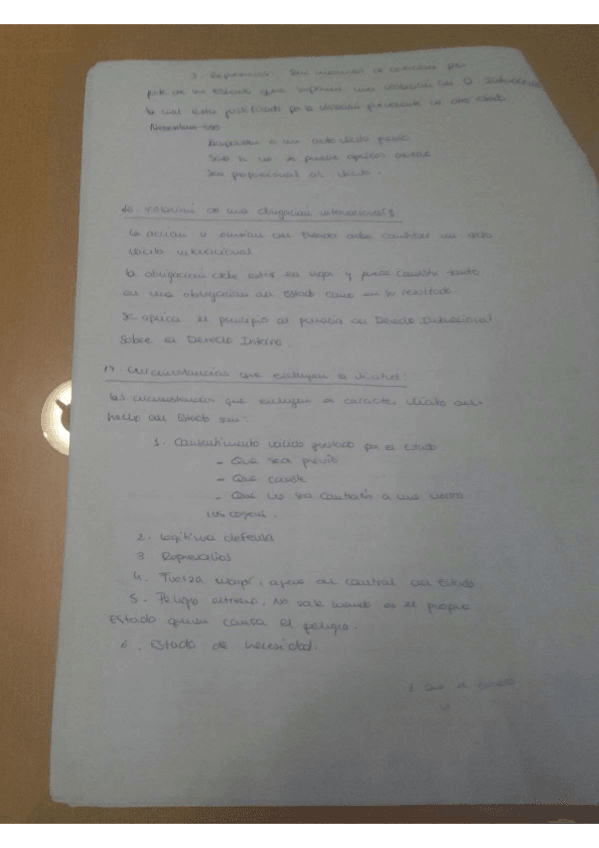 3. Represalias: Son medidas de coerción por
parte de un Estado que suponen una violación del D. Internacional
la cual está justificada por la violación precedente de otro Estado.
Responder a un acto ilícito previo
Solo si no se puede aplicar
Sea proporcional al ilícito.
violación de una obligación internacional:
La acción u omisión del Estado debe constituir un acto
ilícito internacional
La obligación debe estar en vigor y puede consistir tanto
en una obligación del Estado como en su resultado.
Se aplica el principio de primacía del Derecho Internacional
sobre el Derecho Interno.
Circunstancias que excluyen la ilicitud:
Las circunstancias que excluyen el carácter ilícito del
hecho del Estado son:
1. Consentimiento válido prestado por el Estado
- Que sea previo
- Que conste
- Que no sea contrario a una norma
ius cogens.
2. Legítima defensa
3 Represalias
4. Fuerza mayor, ajena al control del Estado
5. Peligro extremo, No vale cuando es el propio
Estado quien causa el peligro.
6. Estado de necesidad.